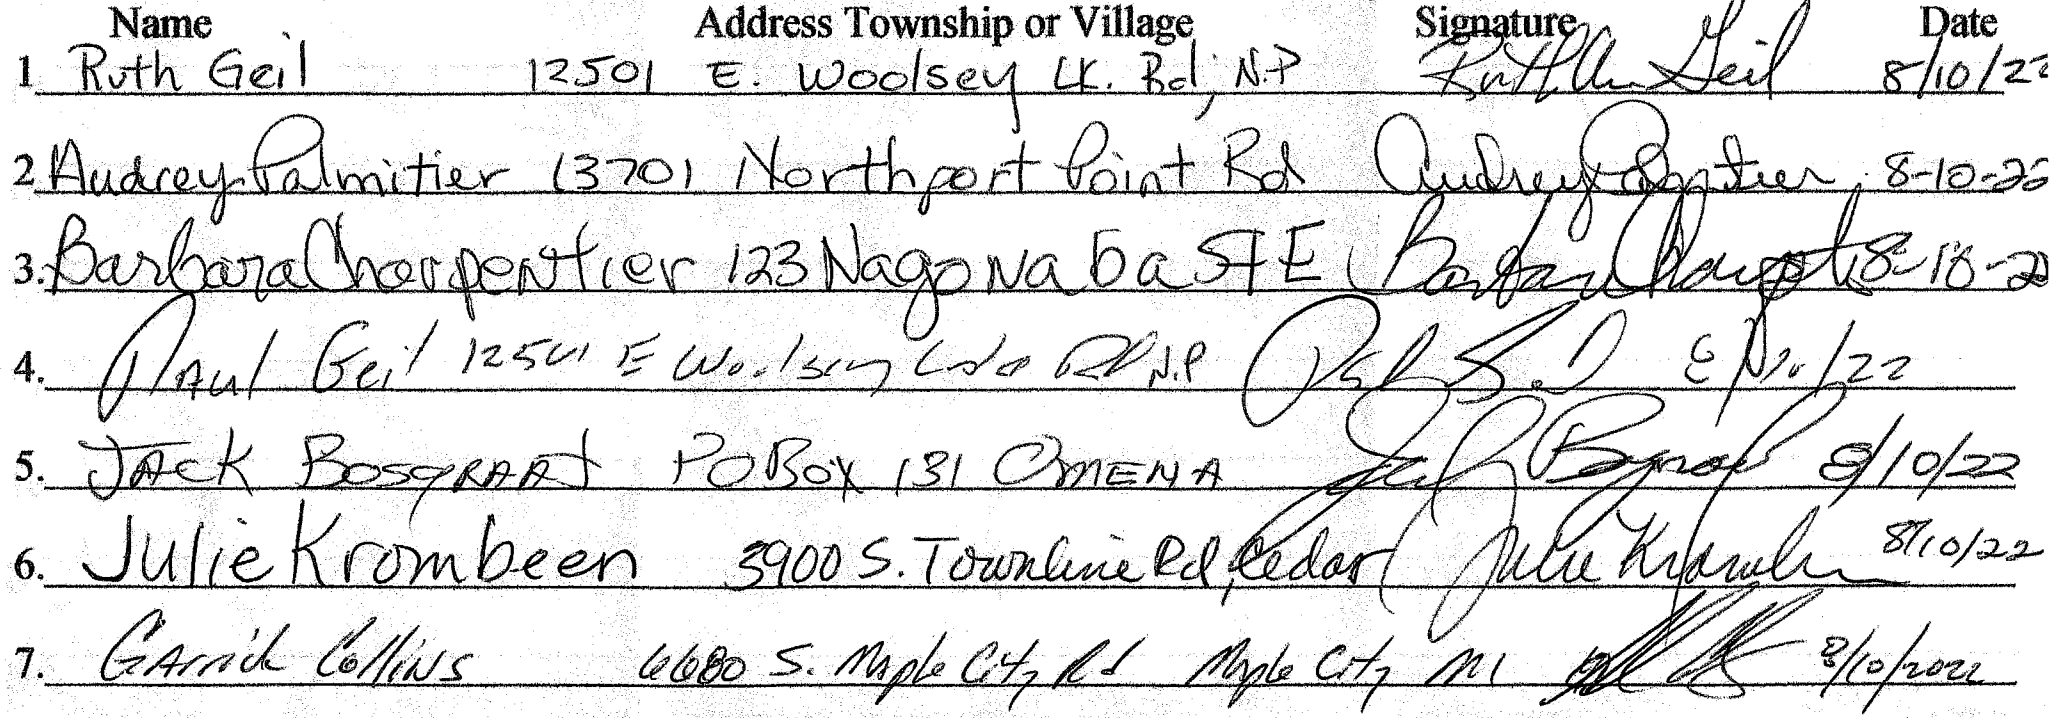 Name Address Township or Village Signature Date
1 Ruth Geil 12501 E. Woolsey LK. Rd, N.P Ruth Ann Geil 8/10/22
2 Audrey Palmitier 13701 Northport Point Rd Audrey Palmitier 8-10-22
3. Barbara Charpentier 123 Nagonaba St E Barbara 8-10-22
4. Paul Geil 12501 E Woolsey Lake Rd N.P 8/10/22
5. JACK BOSGRAAF PO BOX 131 OMENA 8/10/22
6. Julie Krombeen 3900 S. Townline Rd, Cedar Julie 8/10/22
7. Garrick Collins 6680 S. Maple City Rd Maple City MI 8/10/2022